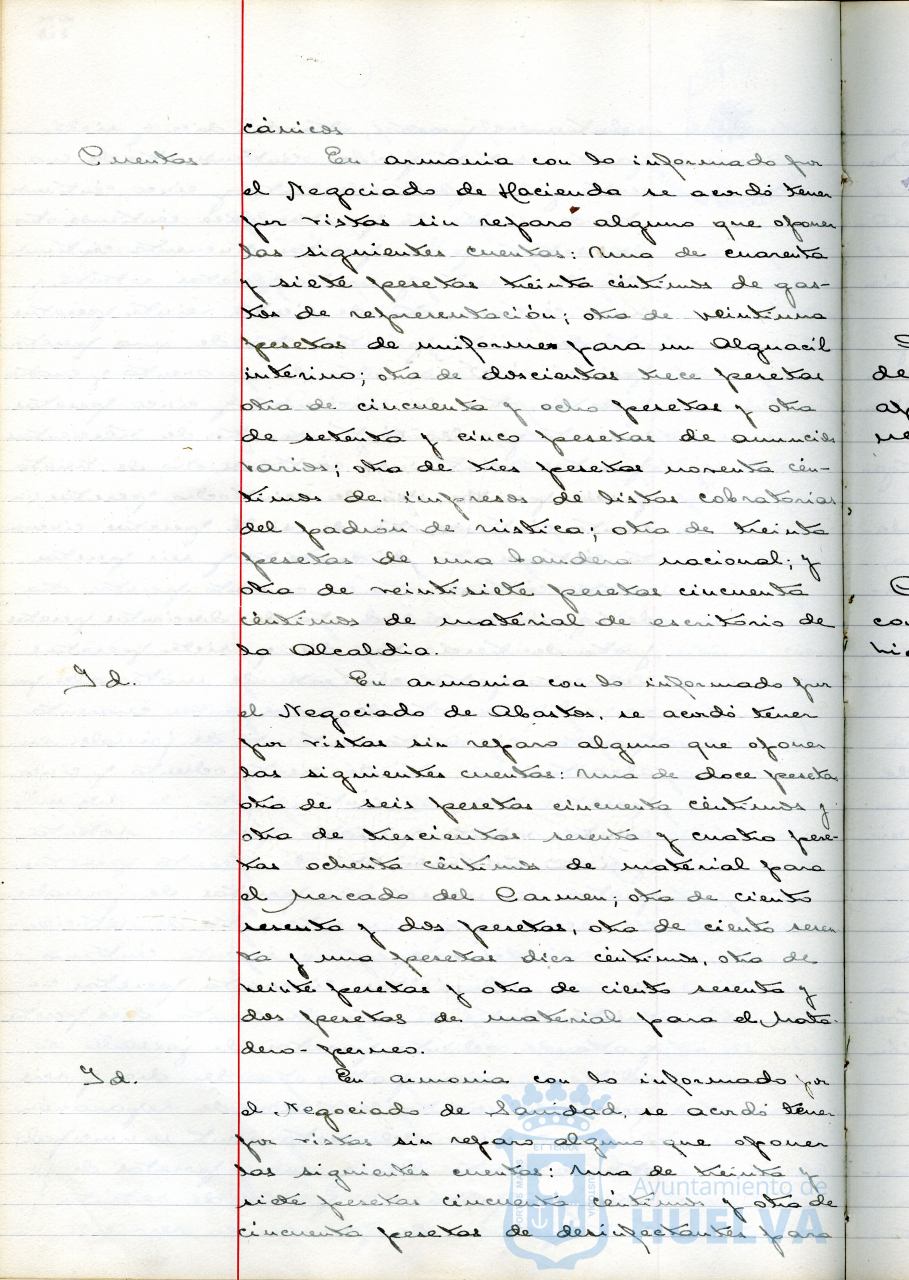 cánicos
Cuentas En armonia con lo informado por
el Negociado de Hacienda se acordó tener
por vistas sin reparo alguno que oponer
las siguientes cuentas: Una de cuarenta
y siete pesetas treinta céntimos de gas-
tos de representación; otra de veintiuna
pesetas de uniformes para un Alguacil
interino; otra de doscientas trece pesetas
otra de cincuenta y ocho pesetas y otra
de setenta y cinco pesetas de anuncios
varios; otra de tres pesetas noventa cén-
timos de impresos de listas cobratorias
del padrón de rústica; otra de treinta
pesetas de una bandera nacional; y
otra de veintisiete pesetas cincuenta
céntimos de material de escritorio de
la Alcaldia.
Id. En armonia con lo informado por
el Negociado de Abastos, se acordó tener
por vistas sin reparo alguno que oponer
las siguientes cuentas: Una de doce pesetas
otra de seis pesetas cincuenta céntimos y
otra de trescientas sesenta y cuatro pese-
tas ochenta céntimos de material para
el Mercado del Carmen; otra de ciento
sesenta y dos pesetas, otra de ciento sesen
ta y una pesetas diez céntimos, otra de
veinte pesetas y otra de ciento sesenta y
dos pesetas de material para el Mata-
dero-perneo.
Id. En armonia con lo informado por
el Negociado de Sanidad, se acordó tener
por vistas sin reparo alguno que oponer
las siguientes cuentas: Una de treinta y
siete pesetas cincuenta céntimos y otra de
cincuenta pesetas de desinfectantes para
Ayuntamiento de
HUELVA